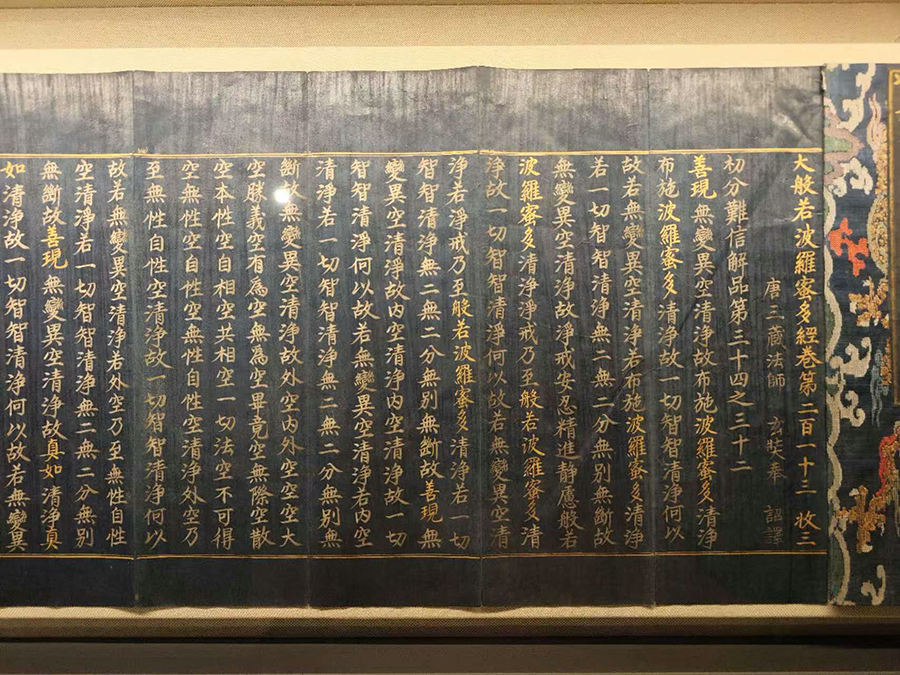 大般若波羅蜜多經卷第二百一十三 牧三
唐三藏法師 玄奘奉 詔譯
初分難信解品第三十四之三十二
善現無變異空清淨故布施波羅蜜多清淨
布施波羅蜜多清淨故一切智智清淨何以
故若無變異空清淨若布施波羅蜜多清淨
若一切智智清淨無二無二分無別無斷故
無變異空清淨故淨戒安忍精進靜慮般若
波羅蜜多清淨淨戒乃至般若波羅蜜多清
淨故一切智智清淨何以故若無變異空清
淨若淨戒乃至般若波羅蜜多清淨若一切
智智清淨無二無二分無別無斷故善現無
變異空清淨故內空清淨內空清淨故一切
智智清淨何以故若無變異空清淨若內空
清淨若一切智智清淨無二無二分無別無
斷故無變異空清淨故外空內外空空空大
空勝義空有為空無為空畢竟空無際空散
空本性空自相空共相空一切法空不可得
空無性空自性空無性自性空清淨外空乃
至無性自性空清淨故一切智智清淨何以
故若無變異空清淨若外空乃至無性自性
空清淨若一切智智清淨無二無二分無別
無斷故善現無變異空清淨故真如清淨真
如清淨故一切智智清淨何以故若無變異